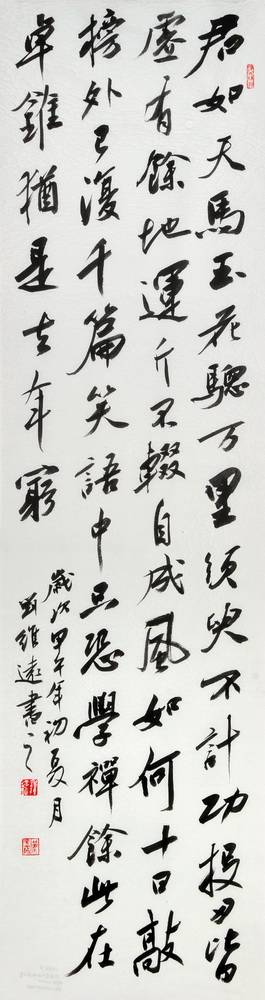 君如天馬玉花驄万里須臾不計功投刃皆
虛有餘地運斤不輟自成風如何十日敲
榜外已復千篇笑語中只恐學禪餘此在
卓錐猶是去年窮
歲次甲午年初夏月
維遠書之